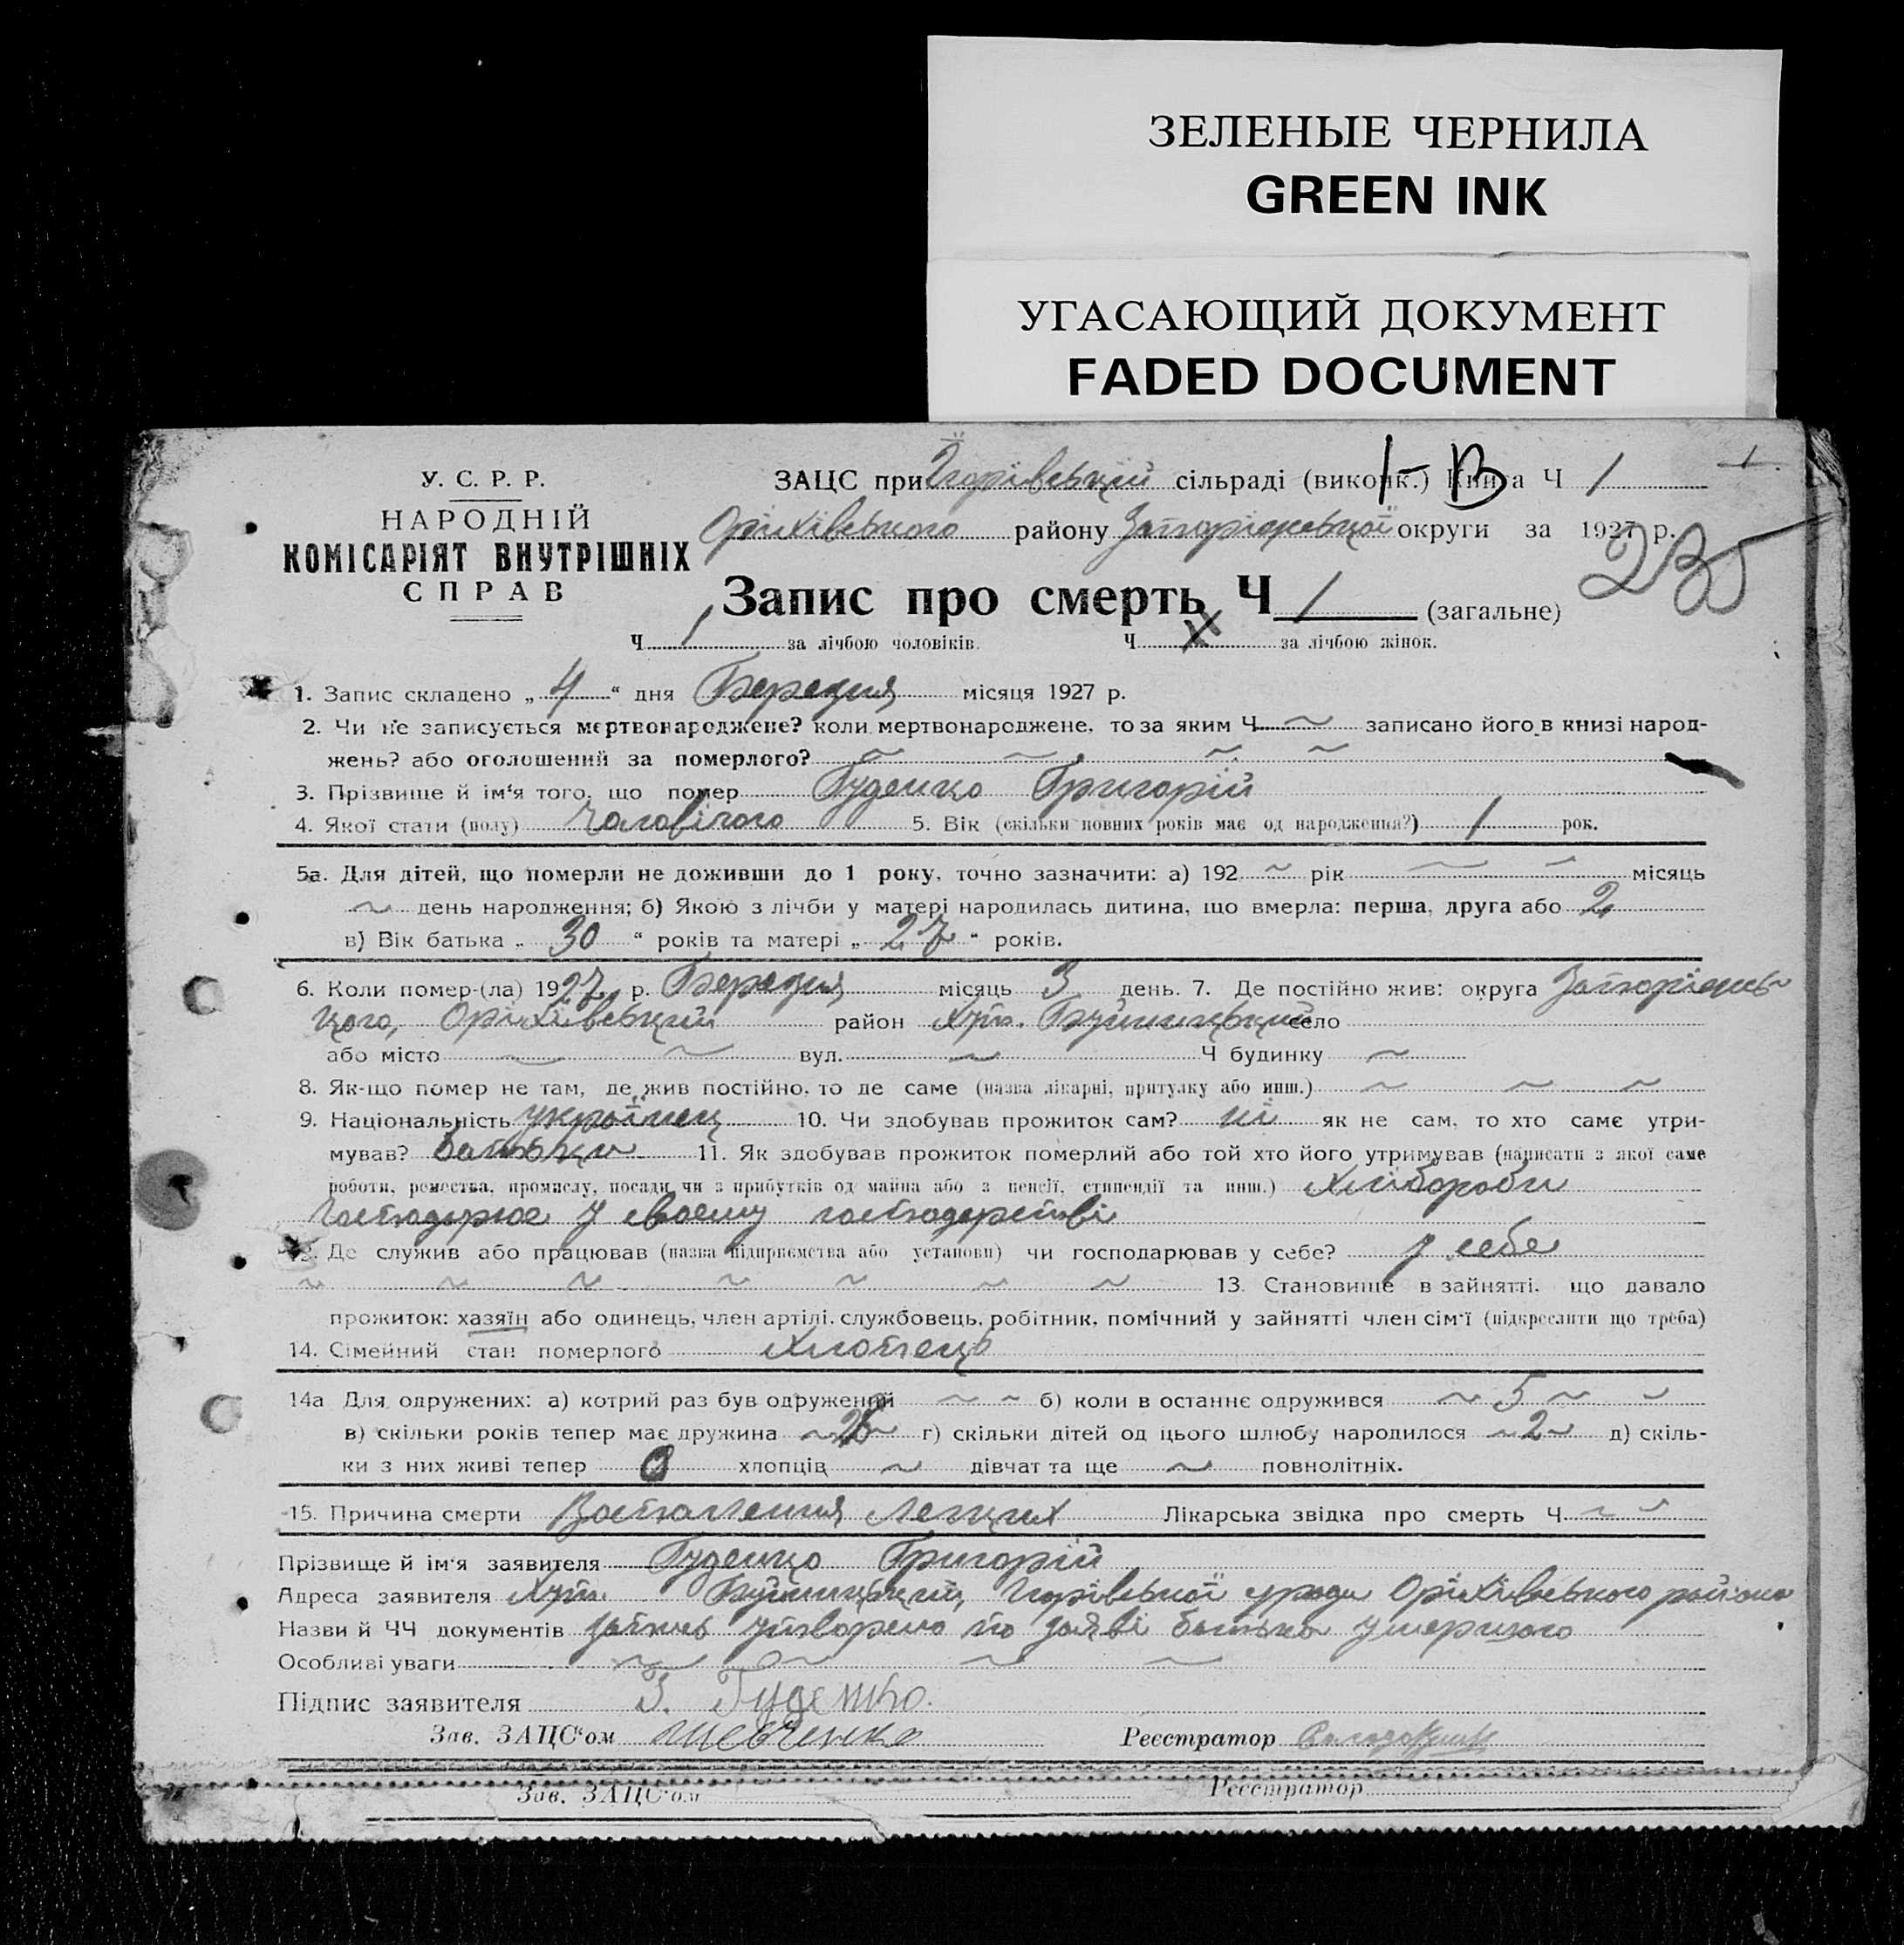 ЗЕЛЕНЫЕ ЧЕРНИЛА
GREEN INK
УГАСАЮЩИЙ ДОКУМЕНТ
FADED DOCUMENT
У. С. Р. Р.
НАРОДНІЙ
КОМІСАРІЯТ ВНУТРІШНІХ
СПРАВ
ЗАЦС при сільраді (виконк.) Книга Ч 1
1-В
Оріхівського району Запоріжської округи за 1927 р.
235
Запис про смерть Ч 1 (загальне)
Ч 1 за лічбою чоловіків. Ч за лічбою жінок.
1. Запис складено „ 4 “ дня Березня місяця 1927 р.
2. Чи не записується мертвонароджене? коли мертвонароджене, то за яким Ч ~ записано його в книзі народ-
жень? або оголошений за померлого? ~ ~ ~ ~
3. Прізвище й ім'я того, що помер Гуденко Григорій
4. Якої стати (полу) чоловічого 5. Вік (скільки повних років має од народження?) 1 рок.
5а. Для дітей, що померли не доживши до 1 року, точно зазначити: а) 192 ~ рік ~ ~ місяць
~ день народження; б) Якою з лічби у матері народилась дитина, що вмерла: перша, друга або 2
в) Вік батька „ 30 “ років та матері „ 27 “ років.
6. Коли помер-(ла) 1927 р. Березня місяць 3 день. 7. Де постійно жив: округа Запоріжсь-
кого, Оріхівський район Хут. село
або місто ~ ~ вул. ~ Ч будинку ~
8. Як-що помер не там, де жив постійно, то де саме (назва лікарні, притулку або инш.) ~ ~ ~
9. Національність українец 10. Чи здобував прожиток сам? ні як не сам, то хто саме утри-
мував? батьки 11. Як здобував прожиток померлий або той хто його утримував (написати з якої саме
роботи, ремества, промислу, посади чи з прибутків од майна або з пенсії, стипендії та инш.) Хлібороби
господарює у своему господарстві
12. Де служив або працював (назва підприємства або установи) чи господарював у себе? у себе
~ ~ ~ ~ ~ ~ ~ 13. Становище в зайнятті, що давало
прожиток: хазяїн або одинець, член артілі, службовець, робітник, помічний у зайнятті член сім'ї (підкреслити що треба)
14. Сімейний стан померлого Хлопець
14а Для одружених: а) котрий раз був одружений ~ ~ б) коли в останнє одружився ~ 5 ~ ~
в) скільки років тепер має дружина г) скільки дітей од цього шлюбу народилося ~2~ д) скіль-
ки з них живі тепер 0 хлопців ~ дівчат та ще ~ повнолітніх.
15. Причина смерти Воспалення легких Лікарська звідка про смерть Ч ~ ~
Прізвище й ім'я заявителя Гуденко Григорій
Адреса заявителя Хут. Оріхівського района
Назви й ЧЧ документів запись утворено по заяві батька умершого
Особливі уваги ~ ~ ~ ~
Підпис заявителя Г. Гуденко.
Зав. ЗАЦС'ом Шевченко Реєстратор
Зав. ЗАЦС'ом Реєстратор